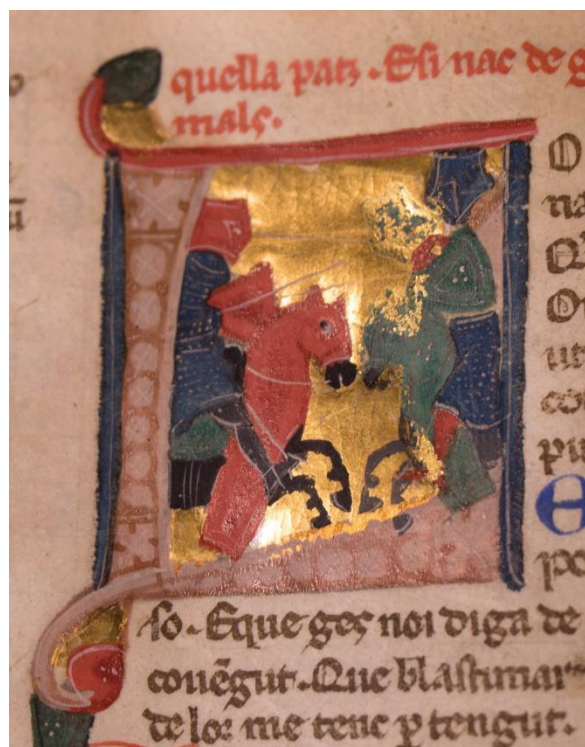 quella patz. Esi nac de g
mals.
O
na
Q
O
ut
co
pu
E
pe
so. Eque ges noi diga de
covēgut. Que blastimar
de loz me tenc p tengut.